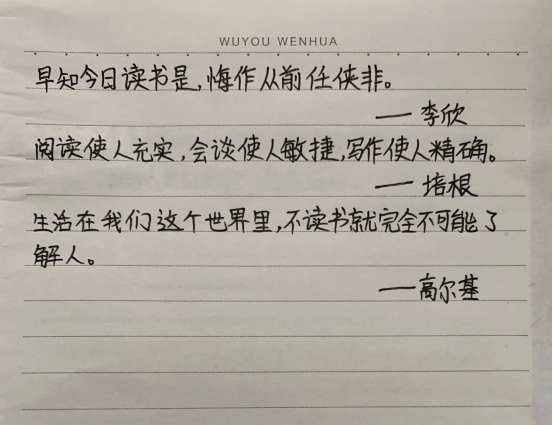 WUYOU WENHUA
早知今日读书是,悔作从前任侠非。
——李欣
阅读使人充实,会谈使人敏捷,写作使人精确。
——培根
生活在我们这个世界里,不读书就完全不可能了
解人。
——高尔基